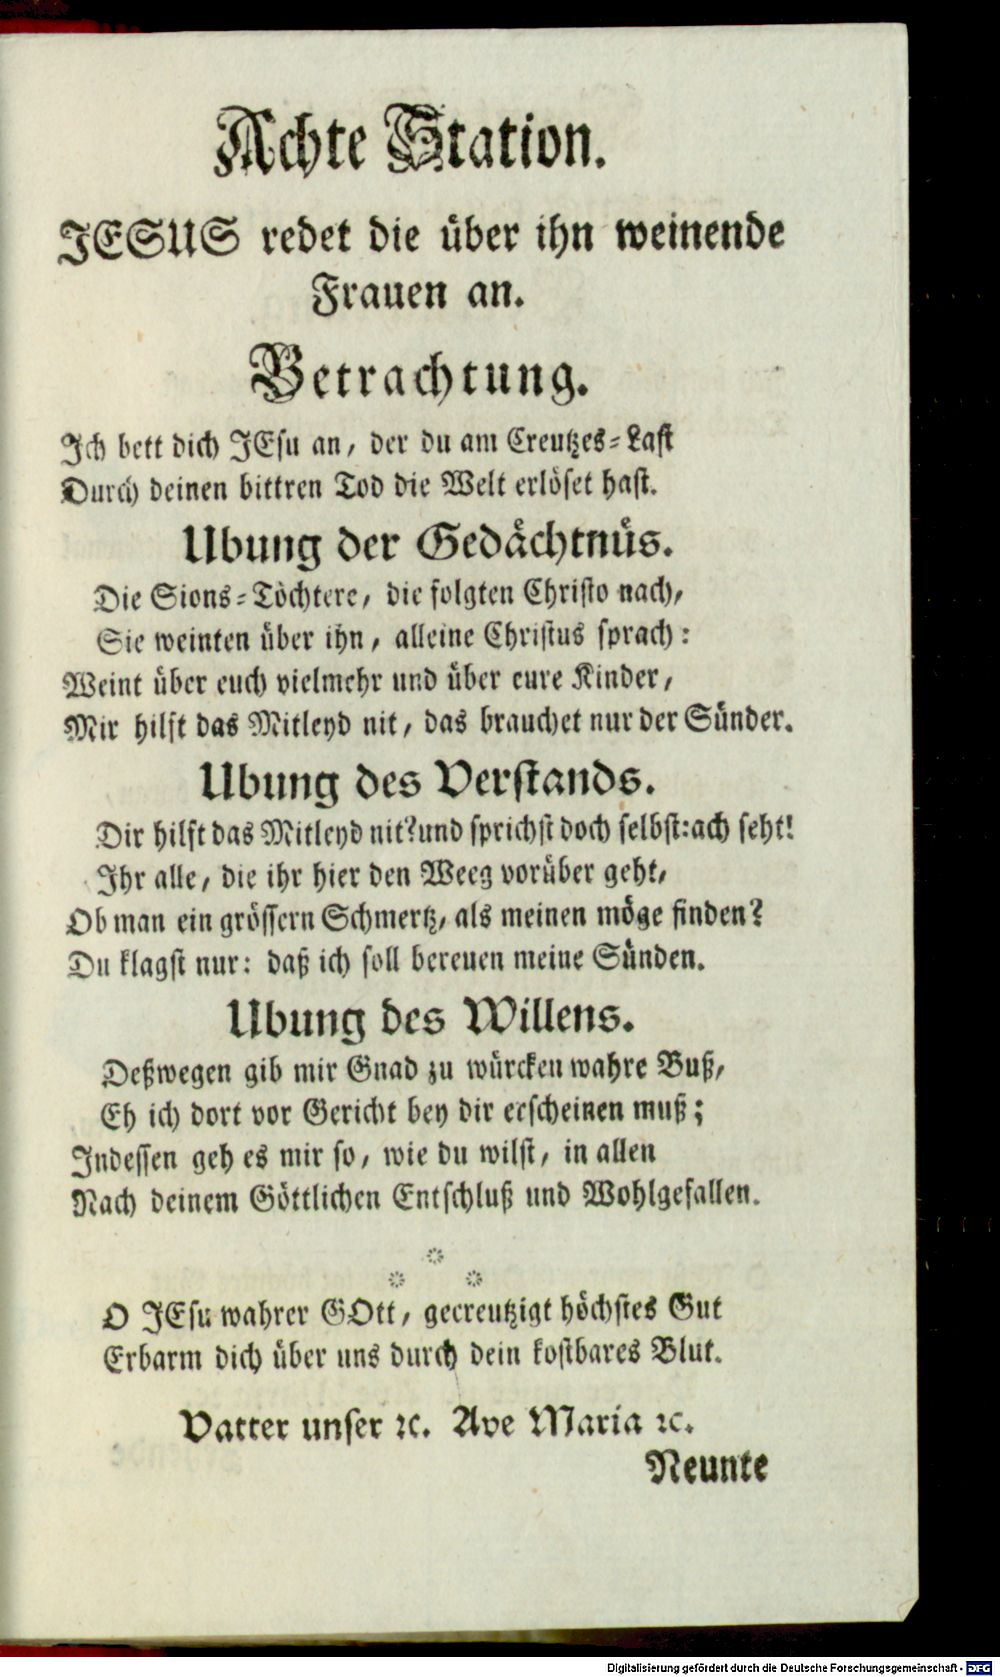 Achte Station.
JESUS redet die über ihn weinende
Frauen an.
Betrachtung.
Ich bett dich JEsu an, der du am Creutzes-Last
Durch deinen bittren Tod die Welt erlöset hast.
Ubung der Gedächtnüs.
Die Sions-Töchtere, die folgten Christo nach,
Sie weinten über ihn, alleine Christus sprach:
Weint über euch vielmehr und über eure Kinder,
Mir hilft das Mitleyd nit, das brauchet nur der Sünder.
Ubung des Verstands.
Dir hilft das Mitleyd nit? und sprichst doch selbst: ach seht!
Ihr alle, die ihr hier den Weeg vorüber geht,
Ob man ein grössern Schmertz, als meinen möge finden?
Du klagst nur: daß ich soll bereuen meine Sünden.
Ubung des Willens.
Deßwegen gib mir Gnad zu würcken wahre Buß,
Eh ich dort vor Gericht bey dir erscheinen muß;
Indessen geh es mir so, wie du wilst, in allen
Nach deinem Göttlichen Entschluß und Wohlgefallen.
O JEsu wahrer GOtt, gecreutzigt höchstes Gut
Erbarm dich über uns durch dein kostbares Blut.
Vatter unser ꝛc. Ave Maria ꝛc.
Neunte
Digitalisierung gefördert durch die Deutsche Forschungsgemeinschaft - DFG